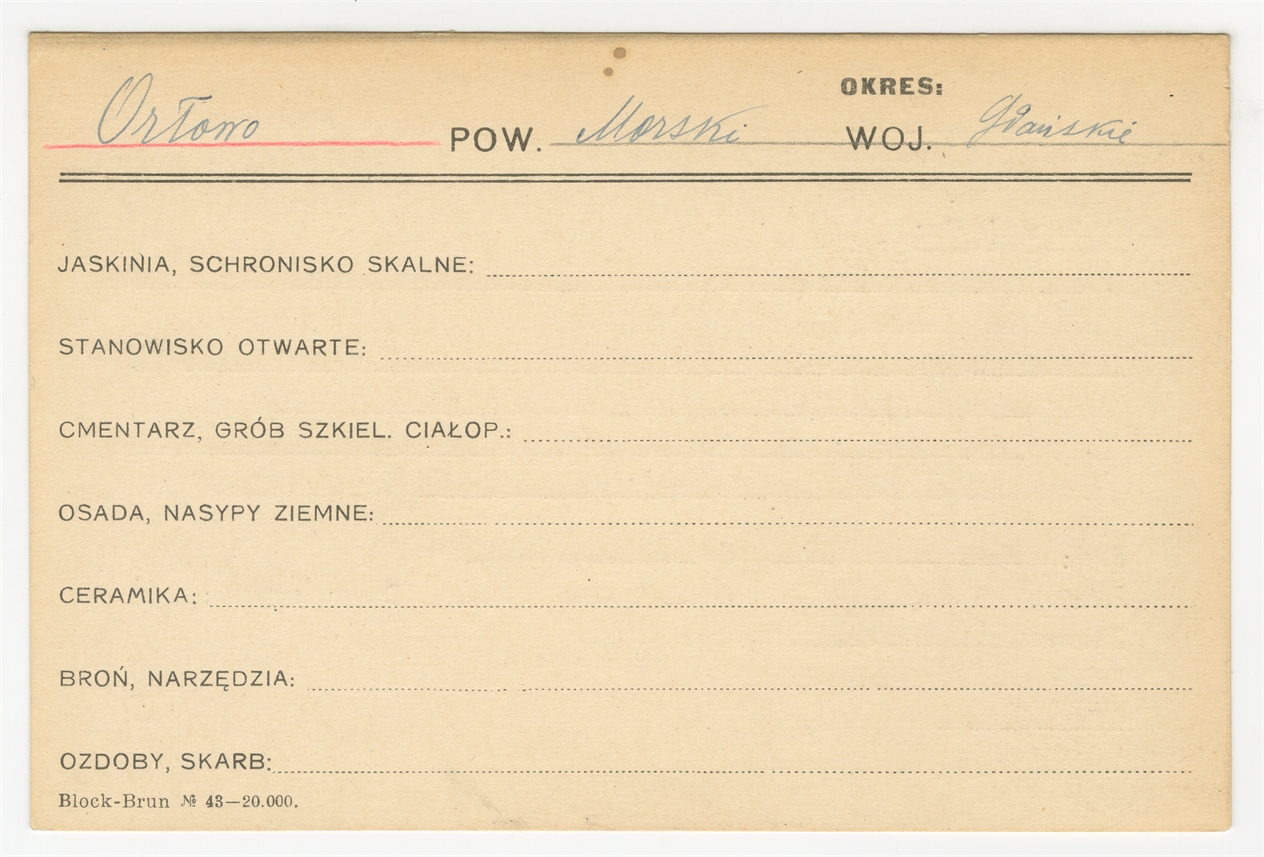 OKRES:
Orłowo POW. Morski WOJ. Gdańskie
JASKINIA, SCHRONISKO SKALNE:
STANOWISKO OTWARTE:
CMENTARZ, GRÓB SZKIEL. CIAŁOP.:
OSADA, NASYPY ZIEMNE:
CERAMIKA:
BROŃ, NARZĘDZIA:
OZDOBY, SKARB:
Block-Brun № 43—20.000.